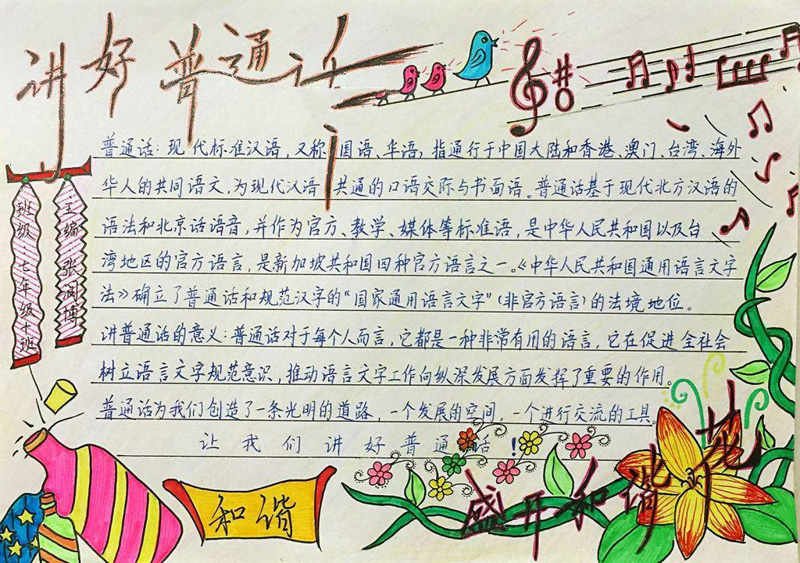 讲好普通话
班级:七年级十班
主编 张润博
普通话:现代标准汉语,又称国语、华语,指通行于中国大陆和香港、澳门、台湾、海外
华人的共同语文,为现代汉语共通的口语交际与书面语。普通话基于现代北方汉语的
语法和北京话语音,并作为官方、教学、媒体等标准语,是中华人民共和国以及台
湾地区的官方语言,是新加坡共和国四种官方语言之一。《中华人民共和国通用语言文字
法》确立了普通话和规范汉字的“国家通用语言文字”(非官方语言)的法境地位。
讲普通话的意义:普通话对于每个人而言,它都是一种非常有用的语言,它在促进全社会
树立语言文字规范意识,推动语言文字工作向纵深发展方面发挥了重要的作用。
普通话为我们创造了一条光明的道路,一个发展的空间,一个进行交流的工具。
让我们讲好普通话!
和谐
盛开和谐花